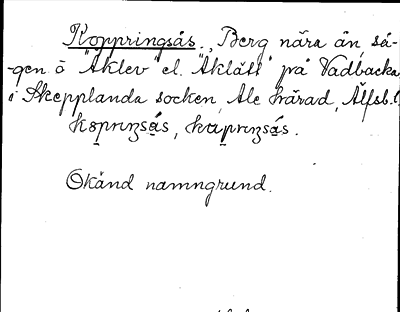 Koppringsås. Berg nära ån, så-
gen å "Åklev" el. "Åklätt" på Vadbacka
i Skepplanda socken, Ale härad, Älfsb.l.
Okänd namngrund.